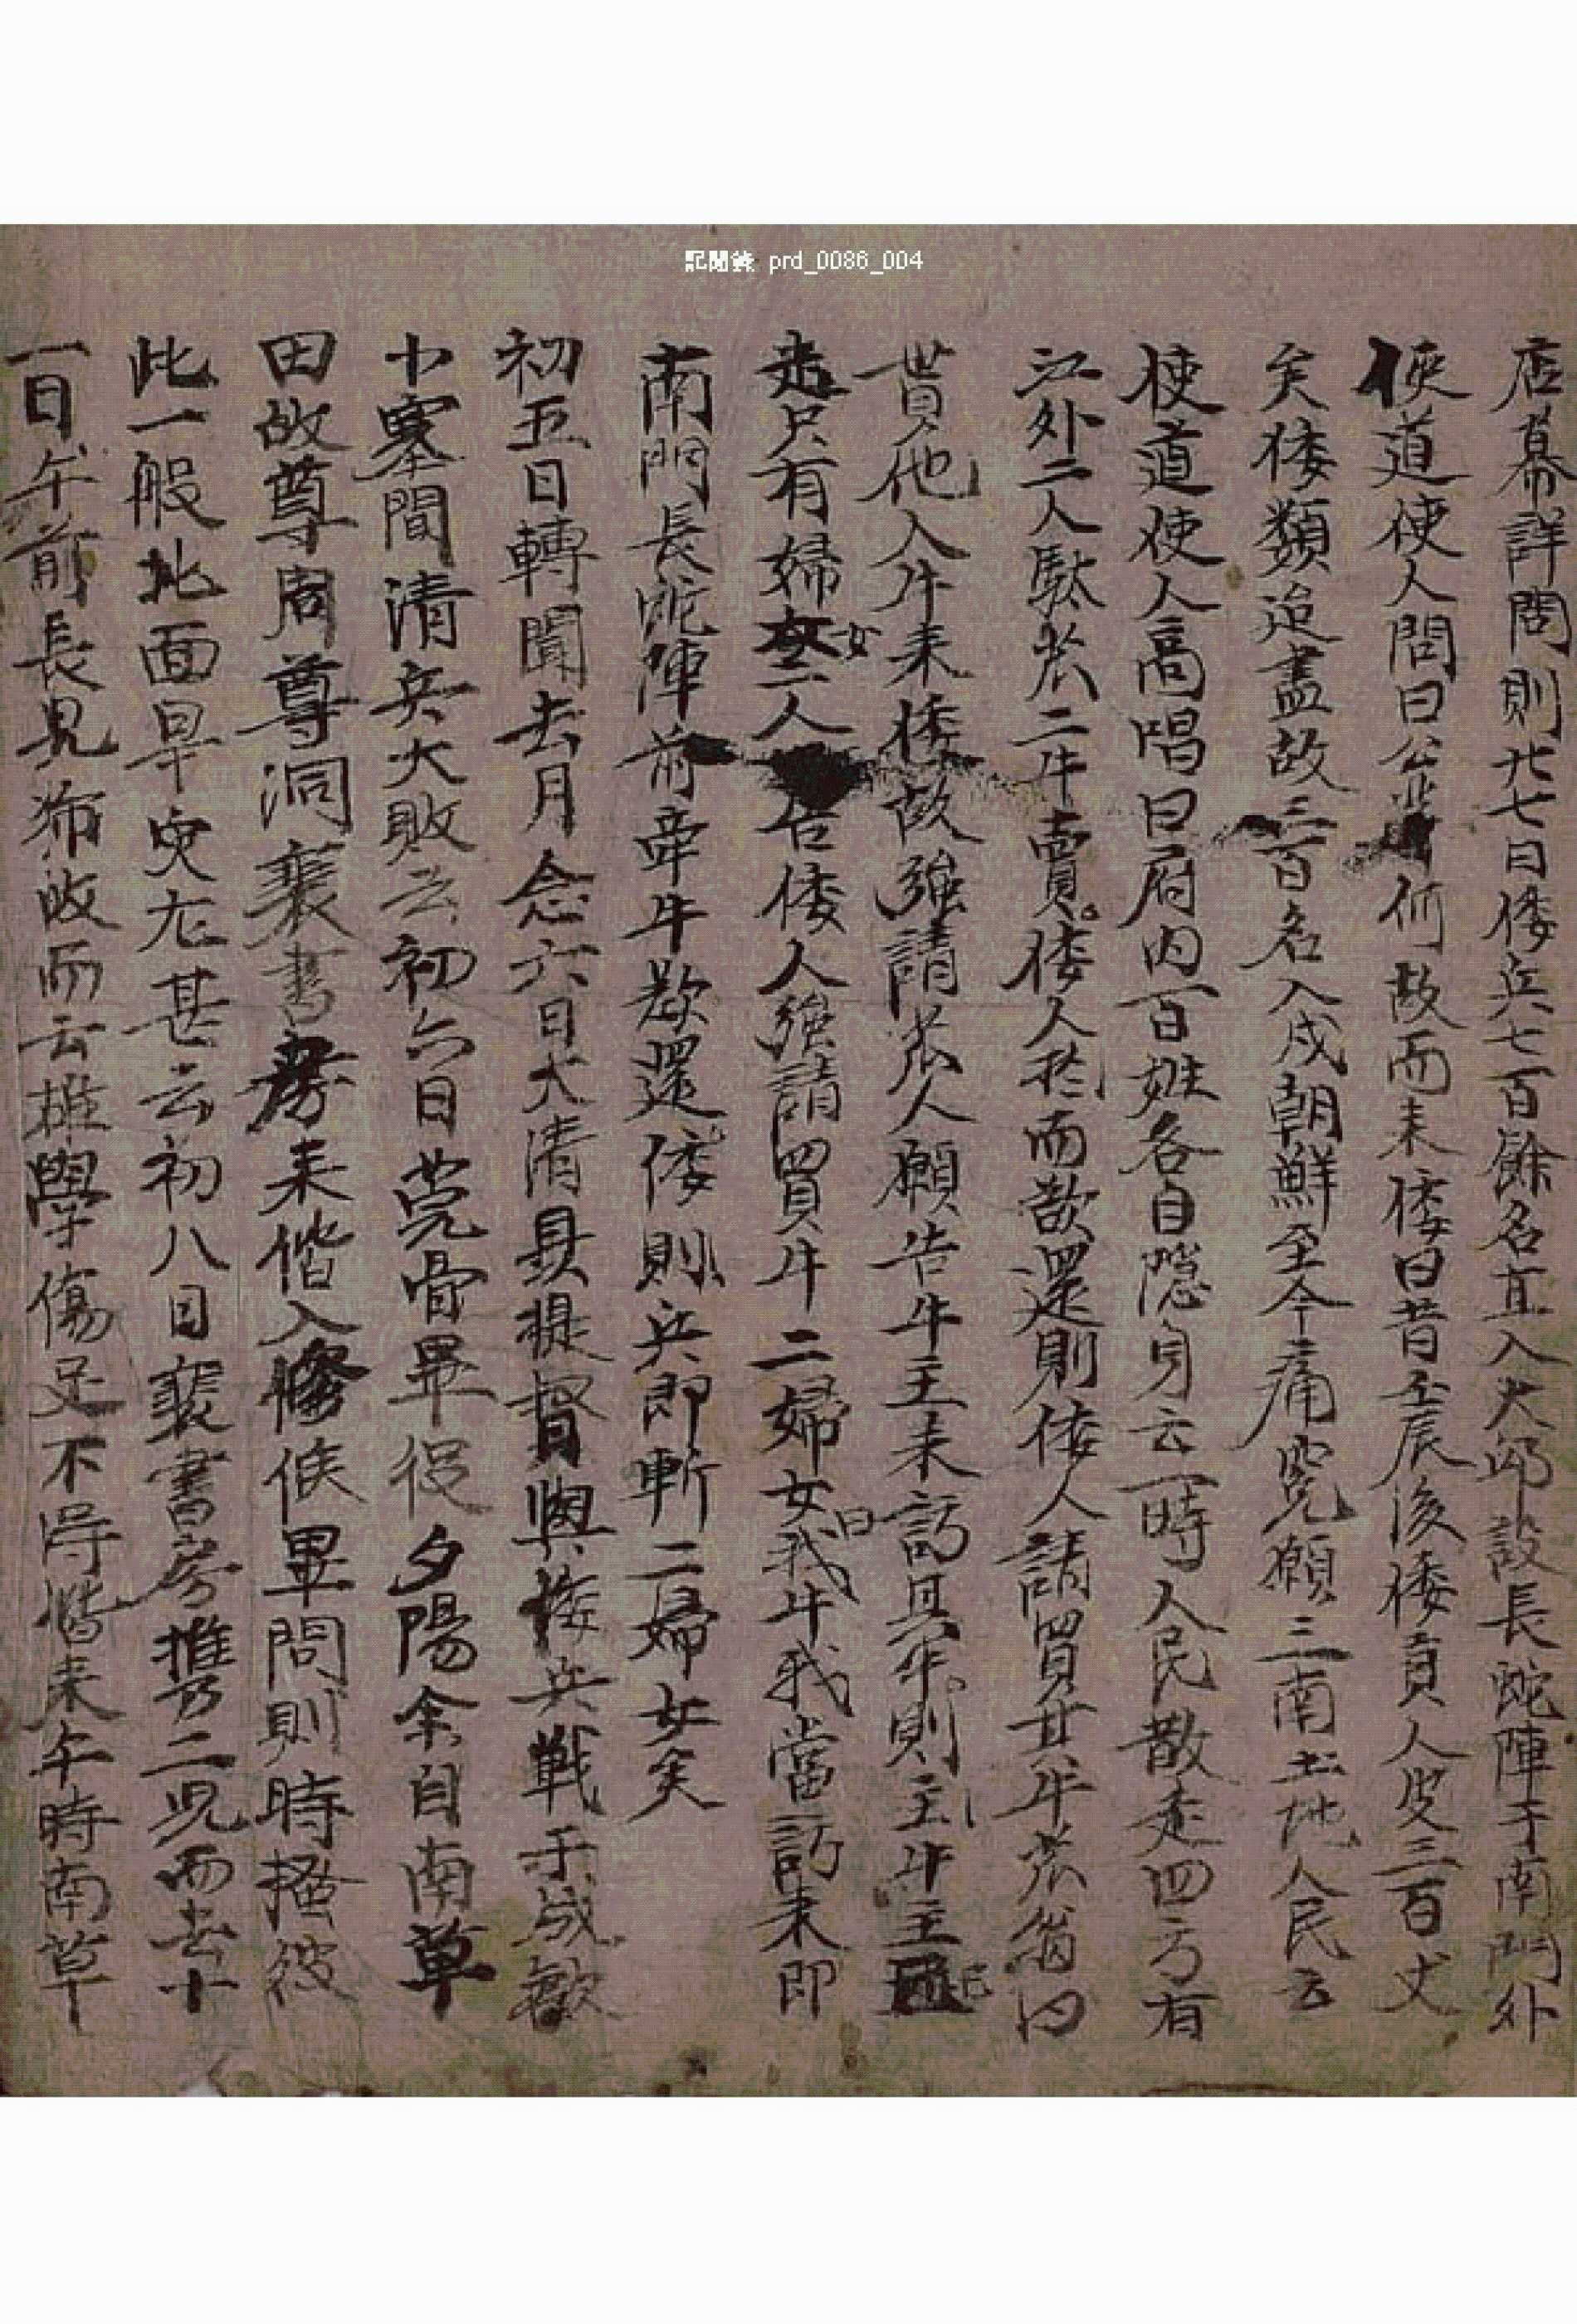 記聞錄 prd_0086_004
店幕詳問則廿七日倭兵七百餘名直入大邱設長蛇陣于南門外
使道使人問曰公輩何故而来倭曰昔壬辰後倭貢人皮三百丈
矣倭類迫盡故三百名入戍朝鮮至今痛寃願三南土地人民云
使道使人高唱曰府内百姓各自隐身云一時人民散走四方有
江外二人駄炭二牛賣倭人於而欲還則倭人請買其牛炭翁曰
貰他人牛来倭故強請炭人願告牛主来訪其牛則主牛主
走只有婦女二人告倭人強請買牛二婦女曰我牛我當訪来即
南門長蛇陣前牽牛欲還倭則兵即斬二婦女矣
初五日轉聞去月念六日大清縣提督與倭兵戰于成歡
卜墓間清兵大敗云初六日莞骨畢役夕陽余自南草
田故尊周尊洞裴書房来偕入修候畢問則時搔彼
此一般北面旱灾尤甚云初八日裴書房携二児而去十
一日午前長見狶改而云推學傷足不得偕来午時南草